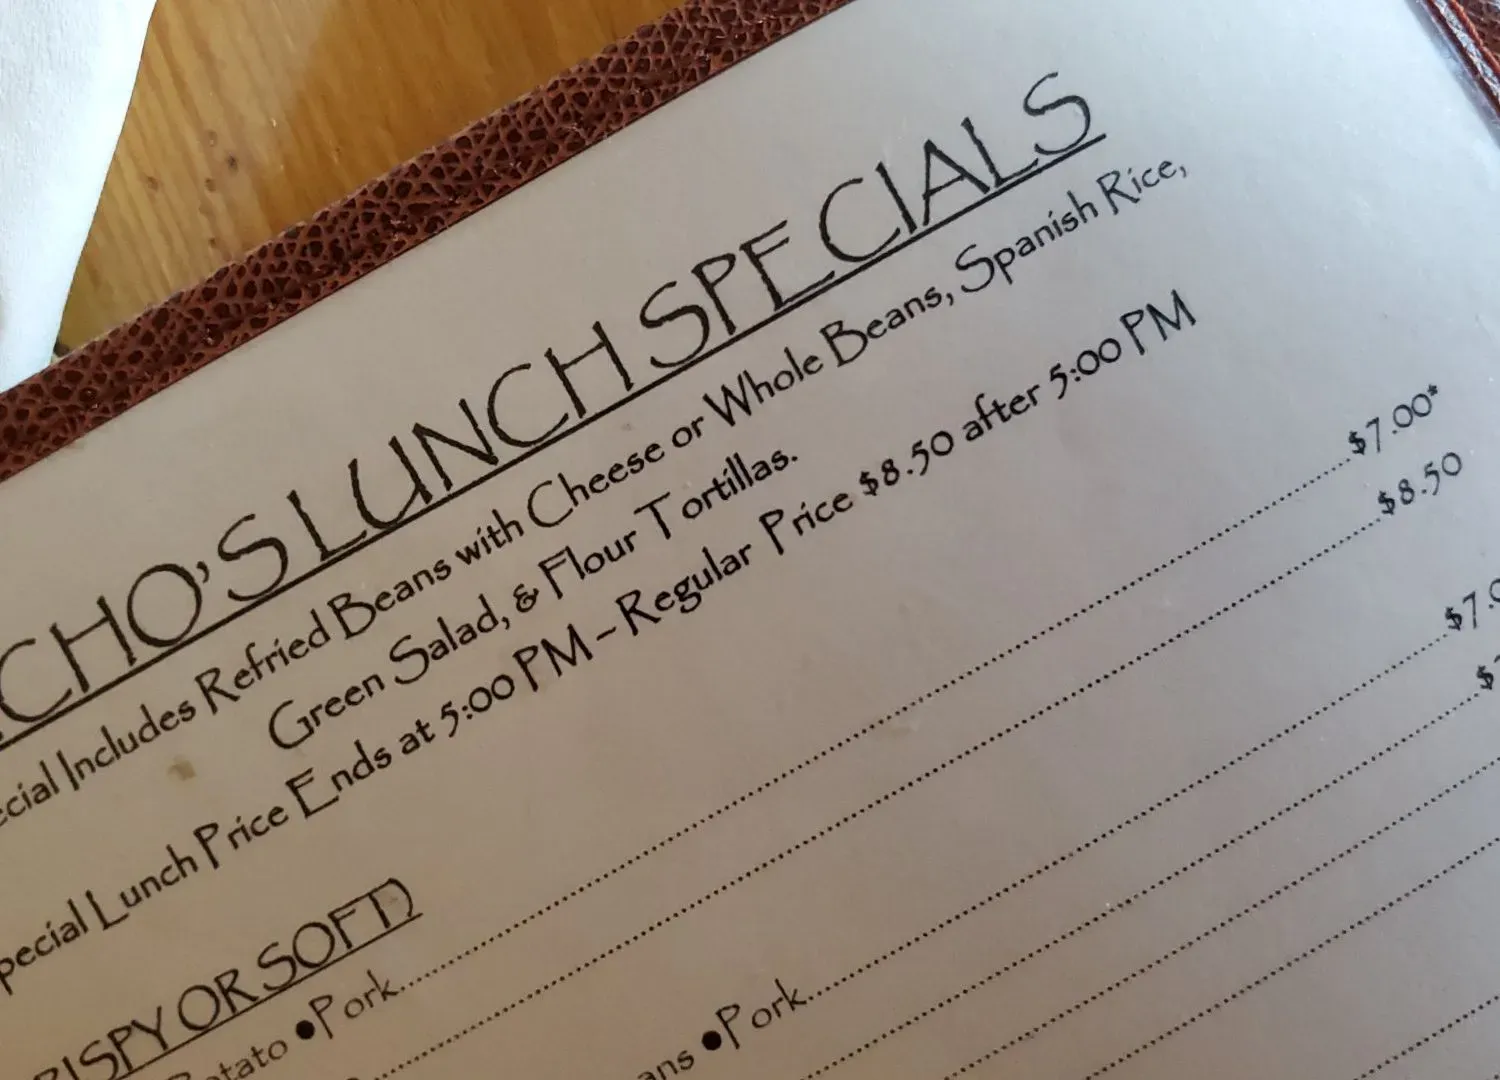 CHO'S LUNCH SPECIALS
ecial Includes Refried Beans with Cheese or Whole Beans, Spanish Rice,
Green Salad, & Flour Tortillas.
pecial Lunch Price Ends at 5:00 PM ~ Regular Price $8.50 after 5:00 PM
RISPY OR SOFT)
otato •Pork....................$7.00*
....................$8.50
ans •Pork....................$7.0
....................$7